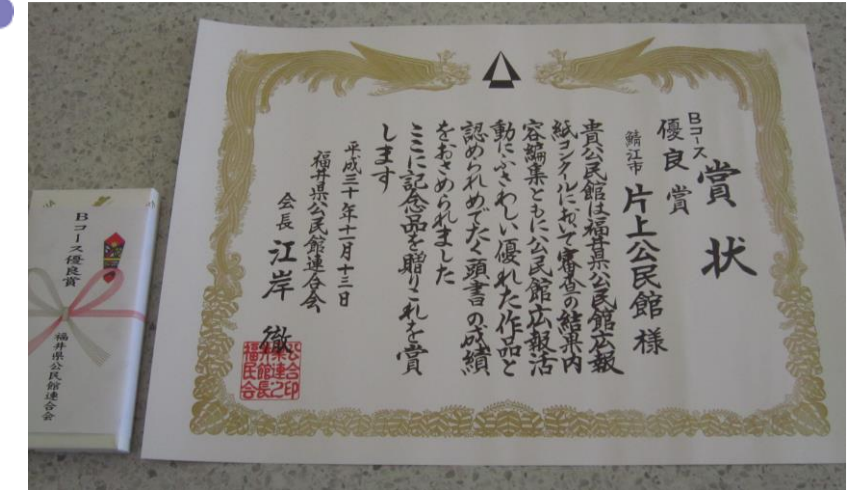 賞状
Bコース
優良賞
鯖江市 片上公民館 様
貴公民館は福井県公民館広報
紙コンクールにおいて審査の結果内
容編集ともに公民館広報活
動にふさわしい優れた作品と
認められめでたく頭書の成績
をおさめられました
ここに記念品を贈りこれを賞
します
平成三十年十一月十三日
福井県公民館連合会
会長 江岸 徹
Bコース優良賞
福井県公民館連合会